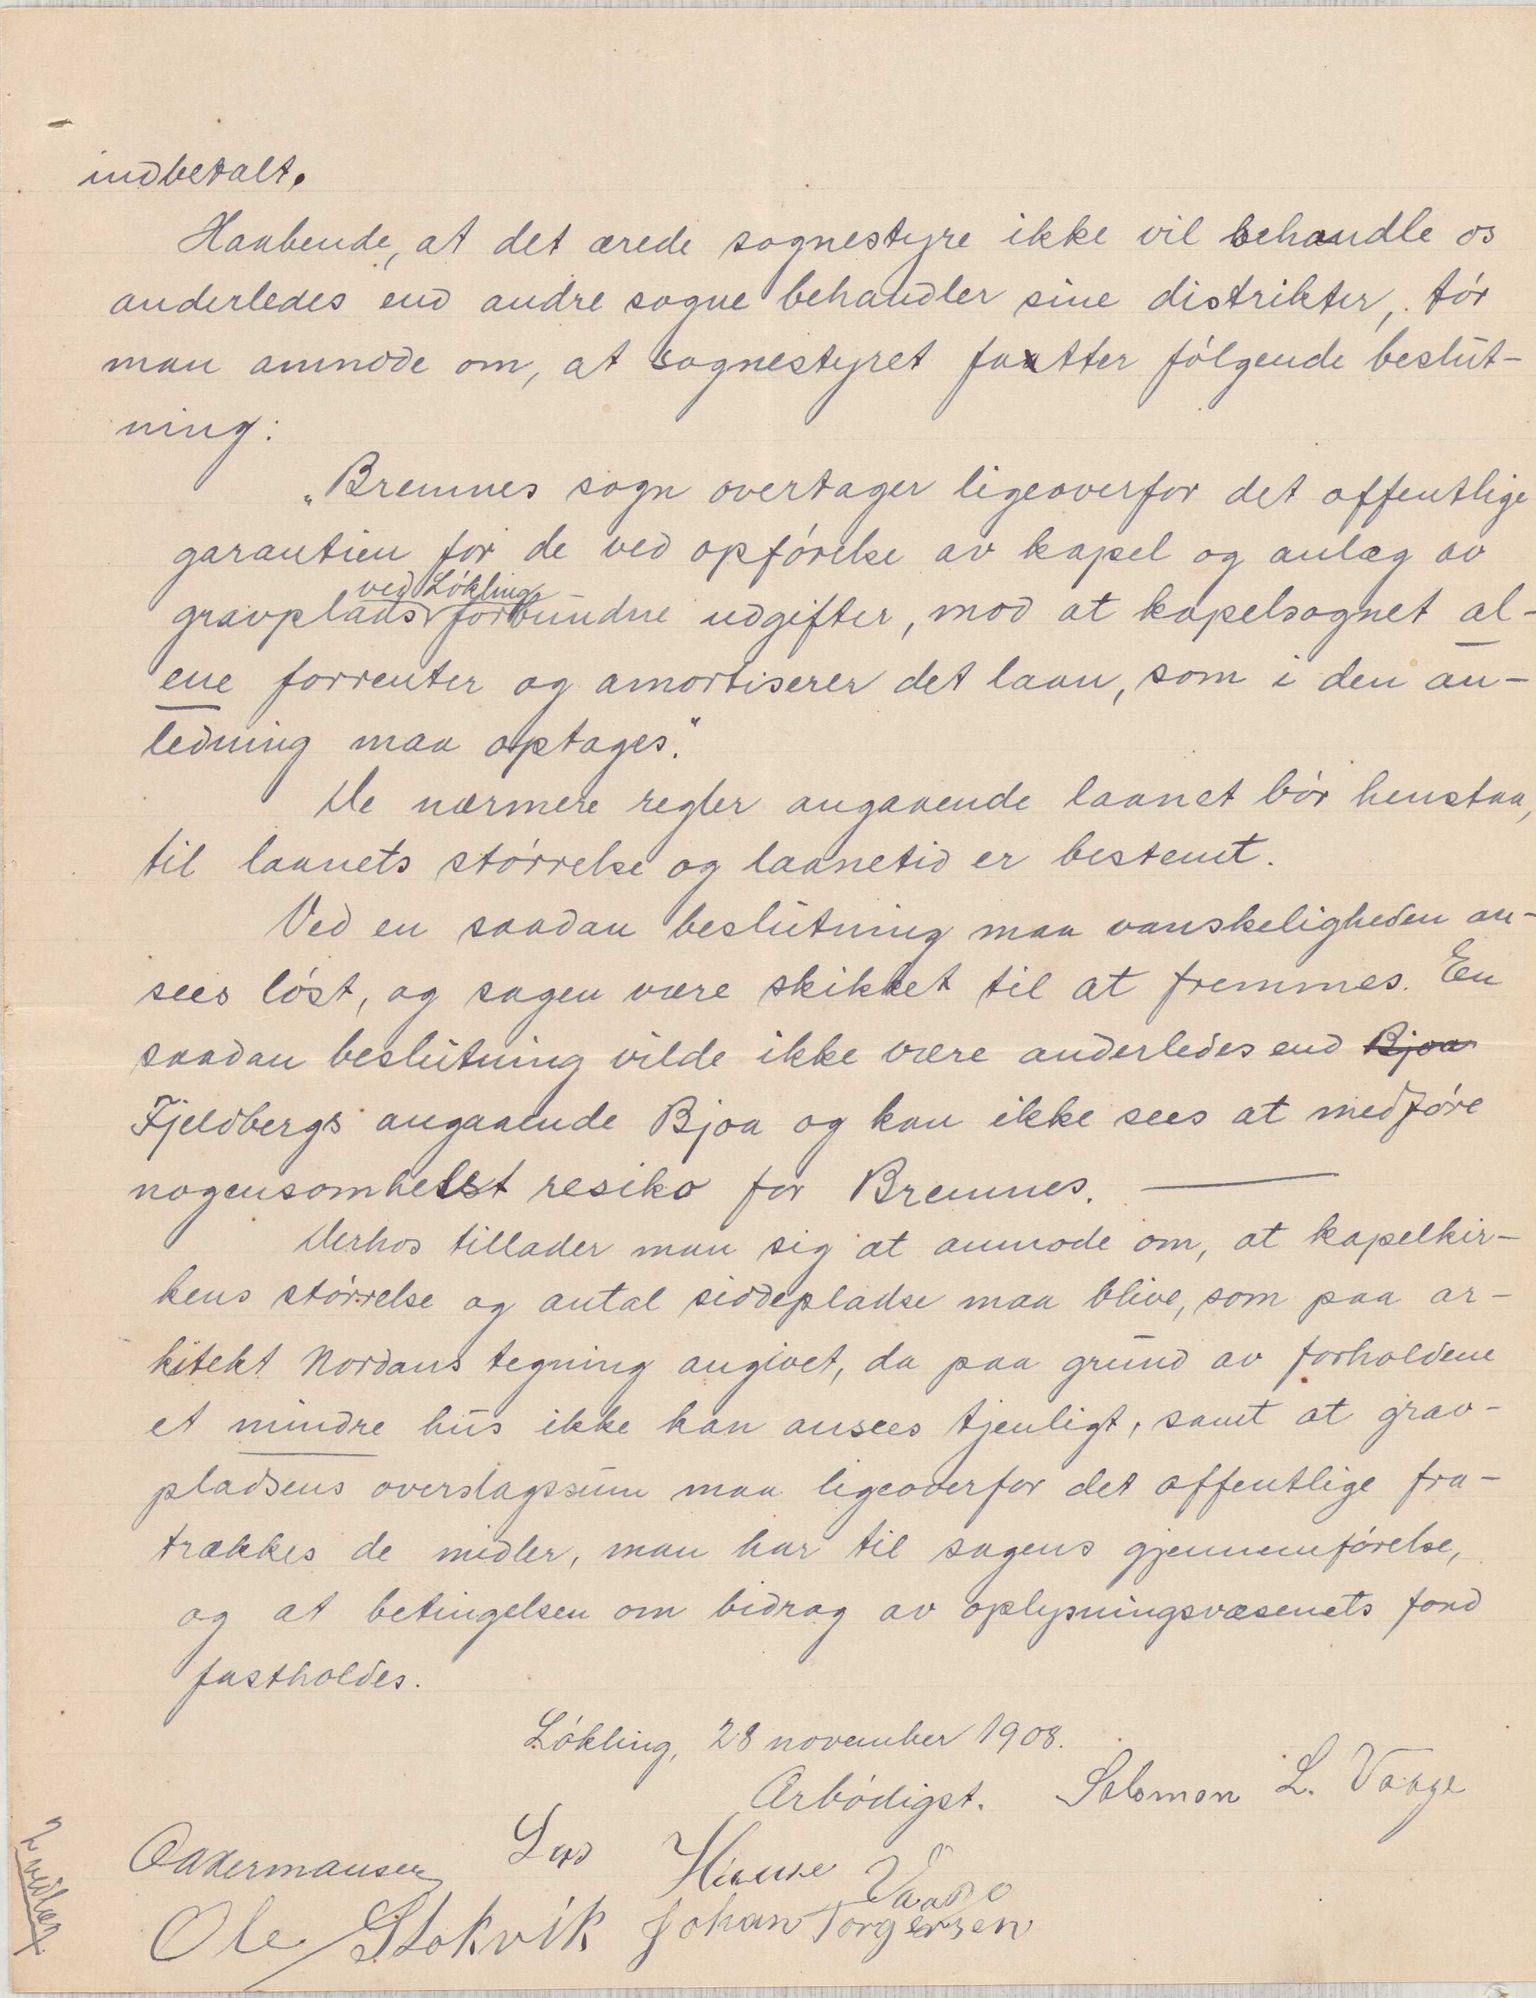 indbetalt.
Haabende, at det ærede sognestyre ikke vil behandle os
anderledes end andre sogne behandler sine distrikter, tør
man anmode om, at sognestyret fatter følgende beslut-
ning:
„Bremnes sogn overtager ligeoverfor det offentlige
garantien for de ved opførelse av kapel og anlæg av
ved Løkling
gravplads forbundne udgifter, mod at kapelsognet al-
ene forrenter og amortiserer det laan, som i den an-
ledning maa optages."
De nærmere regler angaaende laanet bør henstaa,
til laanets størrelse og laanetid er bestemt.
Ved en saadan beslutning maa vanskeligheden an-
sees løst, og sagen være skikket til at fremmes. En
saadan beslutning vilde ikke være anderledes end Bjoa
Fjeldbergs angaaende Bjoa og kan ikke sees at medføre
nogensomhelst resiko for Bremnes. —
Derhos tillader man sig at anmode om, at kapelkir-
kens størrelse og antal siddepladse maa blive, som paa ar-
kitekt Nordans tegning angivet, da paa grund av forholdene
et mindre hus ikke kan ansees tjenligt, samt at grav-
pladsens overslagssum maa ligeoverfor det offentlige fra-
trækkes de midler, man har til sagens gjennemførelse,
og at betingelsen om bidrag av oplysningsvæsenets fond
fastholdes.
Løkling, 28 november 1908.
Ærbødigst. Salomon L. Vaage
Vaage
Ole Stokvik Johan Torgersen
2 vedlæg